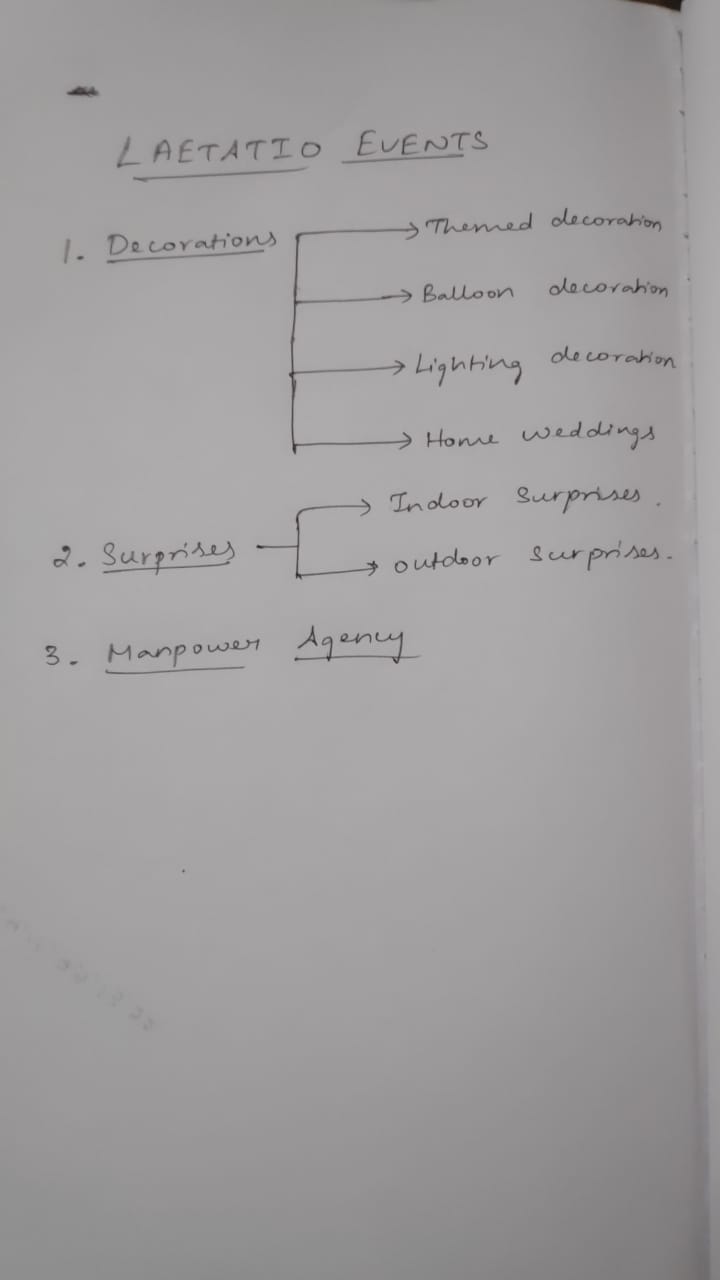 LAETATIO EVENTS
1. Decorations → Themed decoration
→ Balloon decoration
→ Lighting decoration
→ Home weddings
→ Indoor Surprises.
2. Surprises
→ outdoor surprises.
3. Manpower Agency